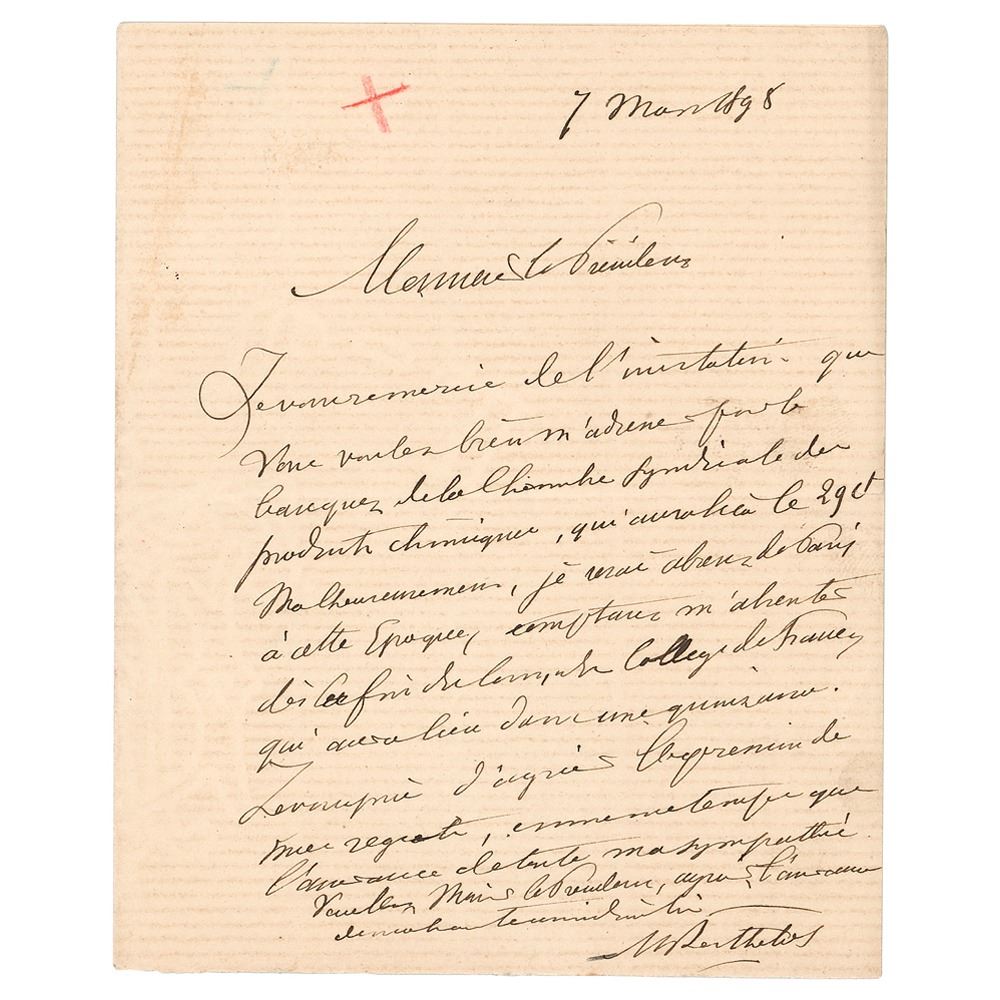 7 Mars 1898
Monsieur le Président
Je vous remercie de l'invitation que
Vous voulez bien m'adresser pour le
banquet de la Chambre Syndicale des
produits chimiques, qui aura lieu le 29 ct
Malheureusement, je serai absent de Paris
à cette Epoque, comptant m'absenter
dès la fin du cours, du Collège de France,
qui aura lieu dans une quinzaine.
Je vous prie d'agréer l'expression de
mes regrets, en même temps que
l'assurance de toute ma sympathie
Veuillez Monsieur le Président, agréer l'assurance
de ma haute considération
M Berthelot